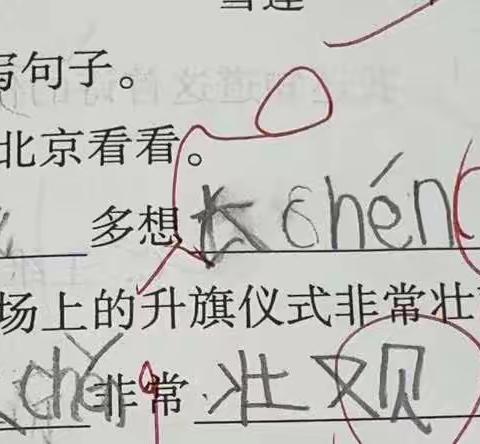 写句子。
北京看看。
多想 长 chén
场上的升旗仪式非常壮
chén 非常 壮观